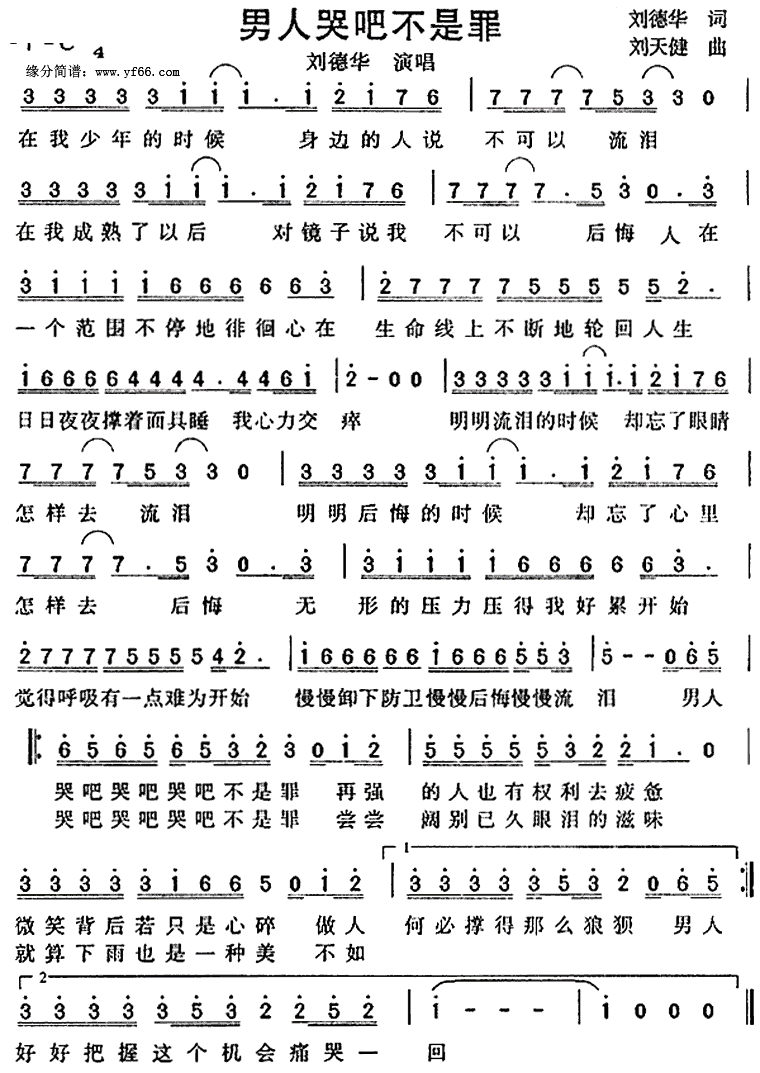 男人哭吧不是罪
刘德华 词
刘天健 曲
刘德华 演唱
缘分简谱：www.yf66.com
4
3 3 3 3 3 i i i . i 2 i 7 6 | 7 7 7 7 5 3 3 3 0 |
在我少年的时候 身边的人说 不可以 流泪
3 3 3 3 3 i i i . i 2 i 7 6 | 7 7 7 7 . 5 3 0 . 3 |
在我成熟了以后 对镜子说我 不可以 后悔 人在
3 i i i i 6 6 6 6 6 6 3 | 2 7 7 7 7 7 5 5 5 5 5 2 . |
一个范围不停地徘徊心在 生命线上不断地轮回人生
i 6 6 6 6 4 4 4 4 . 4 4 6 i | 2 - 0 0 | 3 3 3 3 3 i i i . i 2 i 7 6
日日夜夜撑着面具睡 我心力交瘁 明明流泪的时候 却忘了眼睛
7 7 7 7 7 5 3 3 3 0 | 3 3 3 3 3 i i i . i 2 i 7 6 |
怎样去 流泪 明明后悔的时候 却忘了心里
7 7 7 7 . 5 3 0 . 3 | 3 i i i i 6 6 6 6 6 6 3 .
怎样去 后悔 无 形的压力压得我好累开始
2 7 7 7 7 5 5 5 5 4 2 . | i 6 6 6 6 6 6 i 6 6 6 5 5 3 | 5 - - 0 6 5
觉得呼吸有一点难为开始 慢慢卸下防卫慢慢后悔慢慢流 泪 男人
6 5 6 5 6 5 3 2 3 0 i 2 | 5 5 5 5 5 3 2 2 i . 0 |
哭吧哭吧哭吧不是罪 再强 的人也有权利去疲惫
哭吧哭吧哭吧不是罪 尝尝 阔别已久眼泪的滋味
1
3 3 3 3 3 i 6 6 5 0 i 2 | 3 3 3 3 3 5 3 2 0 6 5 :‖
微笑背后若只是心碎 做人 何必撑得那么狼狈 男人
就算下雨也是一种美 不如
2
3 3 3 3 3 5 3 2 2 2 5 2 | i - - - | i 0 0 0 ‖
好好把握这个机会痛哭一 回